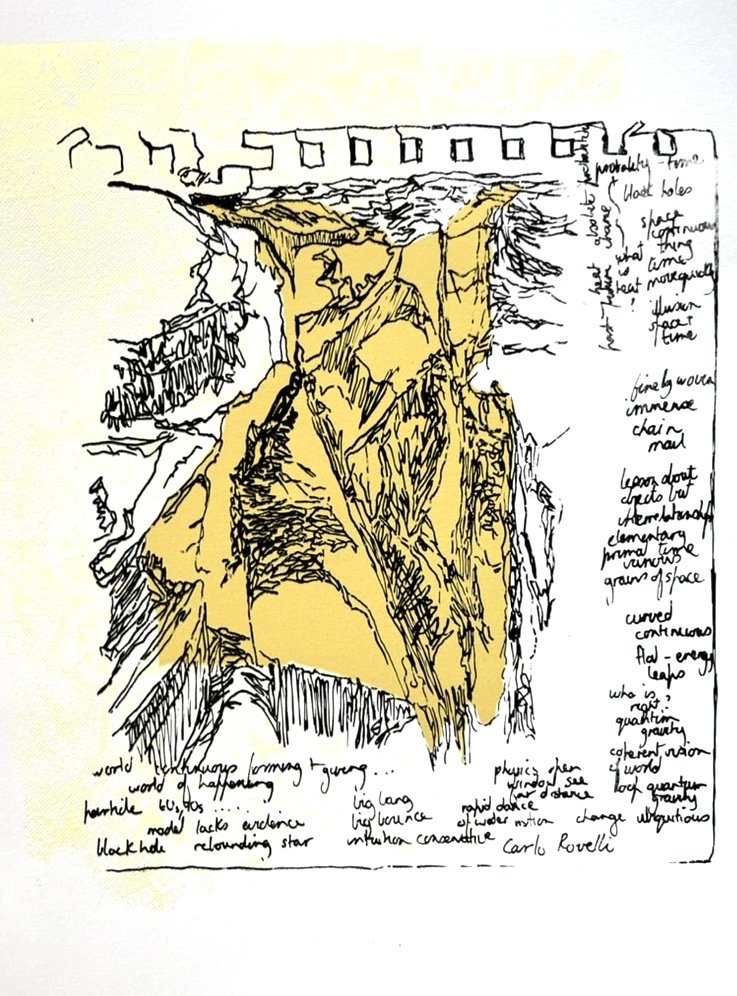 probality - time
black holes
space
continuous
thing
what
is
time
heat
move quickly
?
illusion
space?
time
absolute
heat
change
finely woven
immense
chain
mail
lesson about
objects but
interrelationship
elementary
primal time
various
grains of space
curved
continuous
flat - energy
leaps
who is
right?
quantum
gravity
coherent vision
of world
loop quantum
gravity
ubiquitious
world continuous forming + going ...
world of happening
60s, 90s .....
model lacks evidence
black hole rebounding star
big bang
big bounce
intuition conservative
physics open
window see
far distance
rapid dance
of wider motion change
Carlo Rovelli